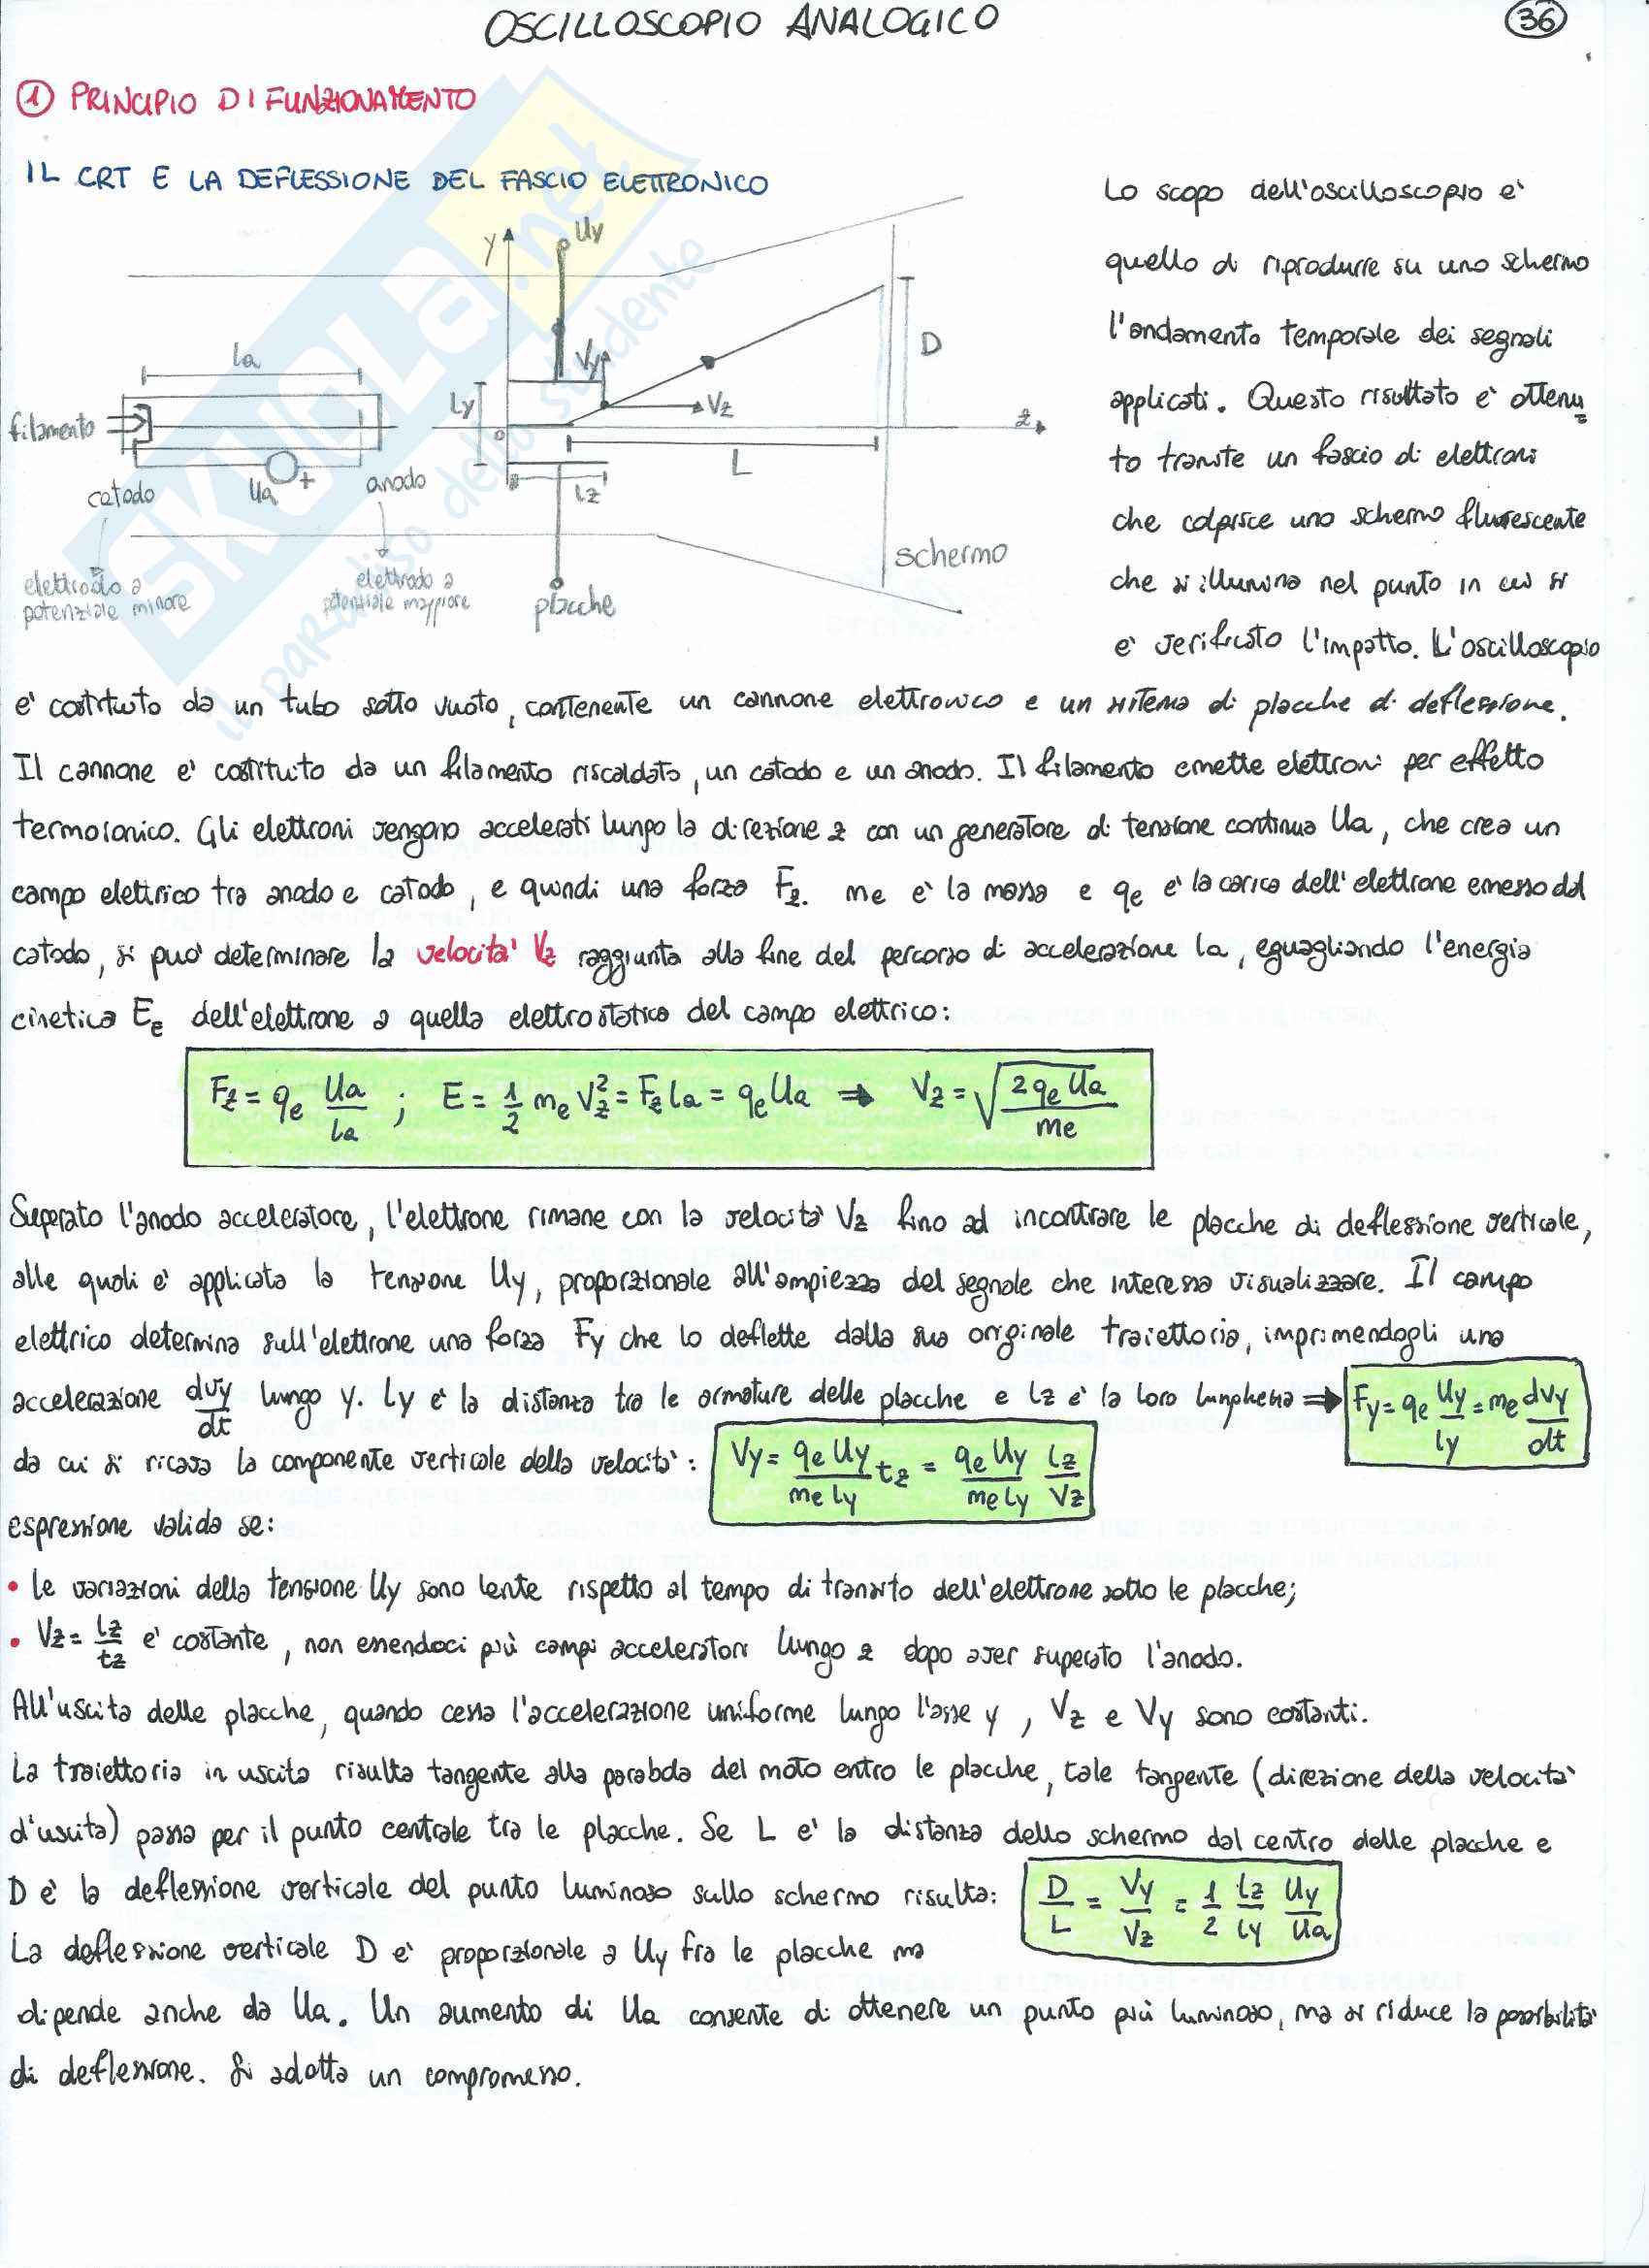 OSCILLOSCOPIO ANALOGICO
36
1 PRINCIPIO DI FUNZIONAMENTO
IL CRT E LA DEFLESSIONE DEL FASCIO ELETTRONICO
la
filamento
catodo
Ua
+
anodo
elettrodo a
potenziale minore
elettrodo a
potenziale maggiore
y
Uy
Vy
Vz
ly
o
lz
L
D
z
placche
schermo
SKUOLA.net
il paradiso dello studente
Lo scopo dell'oscilloscopio e'
quello di riprodurre su uno schermo
l'andamento temporale dei segnali
applicati. Questo risultato e' ottenu
to tramite un fascio di elettroni
che colpisce uno schermo fluorescente
che si illumina nel punto in cui si
e' verificato l'impatto. L'oscilloscopio
e' costituito da un tubo sotto vuoto, contenente un cannone elettronico e un sistema di placche di deflessione.
Il cannone e' costituito da un filamento riscaldato, un catodo e un anodo. Il filamento emette elettroni per effetto
termoionico. Gli elettroni vengono accelerati lungo la direzione z con un generatore di tensione continua Ua, che crea un
campo elettrico tra anodo e catodo, e quindi una forza Fz. me e' la massa e qe e' la carica dell'elettrone emesso dal
catodo, si puo' determinare la velocita' Vz raggiunta alla fine del percorso di accelerazione la, eguagliando l'energia
cinetica Ee dell'elettrone a quella elettrostatica del campo elettrico:
Fz = qe Ua/la ; E = 1/2 me Vz² = Fz la = qe Ua ⇒ Vz = √(2qe Ua/me)
Superato l'anodo acceleratore, l'elettrone rimane con la velocita' Vz fino ad incontrare le placche di deflessione verticale,
alle quali e' applicata la tensione Uy, proporzionale all'ampiezza del segnale che interessa visualizzare. Il campo
elettrico determina sull'elettrone una forza Fy che lo deflette dalla sua originale traiettoria, imprimendogli una
accelerazione dvy/dt lungo y. ly e' la distanza tra le armature delle placche e lz e' la loro lunghezza ⇒ Fy = qe Uy/ly = me dVy/dt
da cui si ricava la componente verticale della velocita': Vy = qe Uy/me ly tz = qe Uy/me ly lz/Vz
espressione valida se:
• le variazioni della tensione Uy sono lente rispetto al tempo di transito dell'elettrone sotto le placche;
• Vz = lz/tz e' costante, non essendoci più campi acceleratori lungo z dopo aver superato l'anodo.
All'uscita delle placche, quando cessa l'accelerazione uniforme lungo l'asse y, Vz e Vy sono costanti.
La traiettoria in uscita risulta tangente alla parabola del moto entro le placche, tale tangente (direzione della velocita'
d'uscita) passa per il punto centrale tra le placche. Se L e' la distanza dello schermo dal centro delle placche e
D e' la deflessione verticale del punto luminoso sullo schermo risulta: D/L = Vy/Vz = 1/2 lz/ly Uy/Ua
La deflessione verticale D e' proporzionale a Uy fra le placche ma
dipende anche da Ua. Un aumento di Ua consente di ottenere un punto più luminoso, ma si riduce la possibilita'
di deflessione. Si adotta un compromesso.